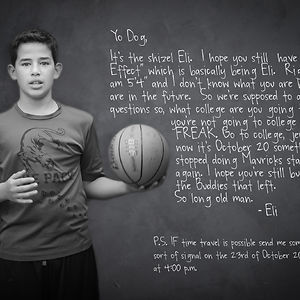 Yo Dog,
It's the shizel Eli. I hope you still have
Effect" which is basically being Eli. Ri
am 5'4" and I don't know what you are b
are in the future. So we're supposed to
questions so, what college are you going t
you're not going to college
FREAK. Go to college, je
now it's October 20 somet
stopped doing Mavricks sta
again. I hope you're still bu
the Buddies that left.
So long old man.
- Eli
P.S. IF time travel is possible send me som
sort of signal on the 23rd of October 20
at 4:00 p.m.